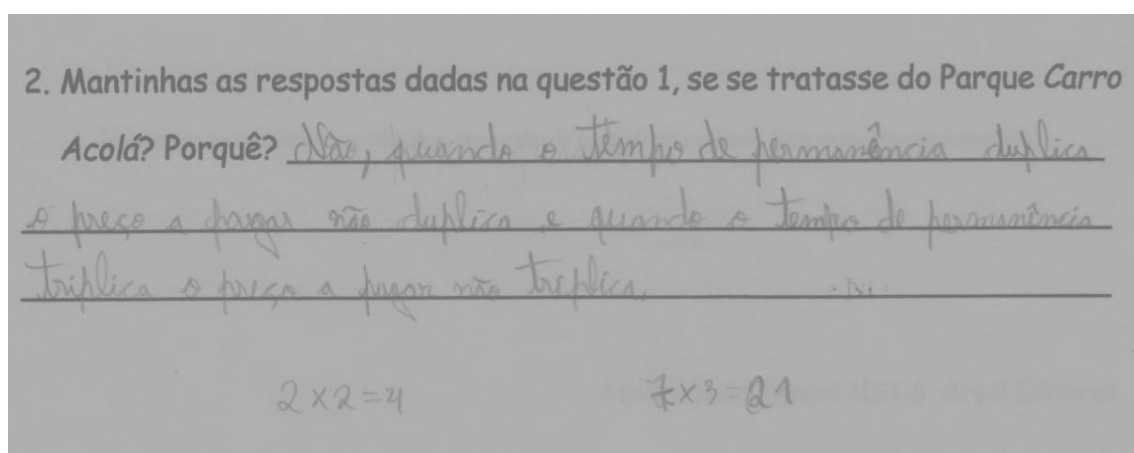 2. Mantinhas as respostas dadas na questão 1, se se tratasse do Parque Carro
Acolá? Porquê? Não, quando o tempo de permanência duplica
o preço a pagar não duplica e quando o tempo de permanência
triplica o preço a pagar não triplica.
2 × 2 = 4 7 × 3 = 21